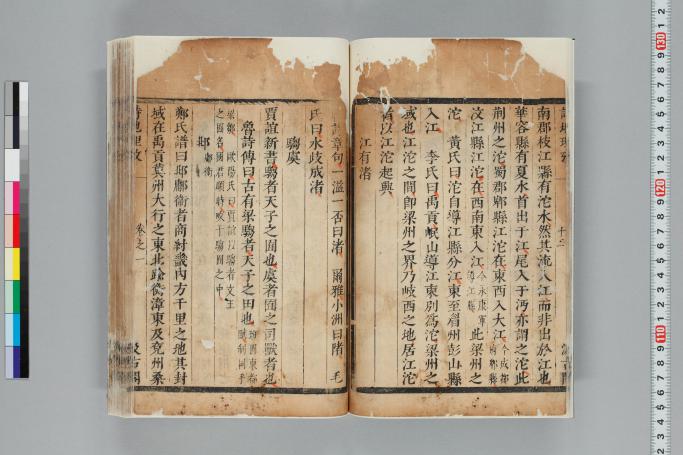 南郡枝江縣有沱水然其流入江而非出於江也
華容縣有夏水首出于江尾入于沔亦謂之沱此
荊州之沱蜀郡郫縣江沱在東西入大江今成都府郫縣
汶江縣江沱在西南東入江今永康軍導江縣此梁州之
沱 黃氏曰沱自導江縣分江東至眉州彭山縣
入江 李氏曰禹貢岷山導江東別為沱梁州之
域也江沱之間卽梁州之界乃岐西之地居江沱
者以江沱起興
江有渚
章句一溢一否曰渚 爾雅小洲曰陼 毛
氏曰水歧成渚
騶虞
賈誼新書騶者天子之囿也虞者囿之司獸者也
魯詩傳曰古有梁騶者天子之田也
歐陽氏曰賈誼以騶者文王
之囿名國君順時畋于騶囿之中
邶鄘衛
鄭氏譜曰邶鄘衛者商紂畿內方千里之地其封
域在禹貢冀州大行之東北踰衡漳東及兗州桑
詩地理攷
卷之一
汲古閣